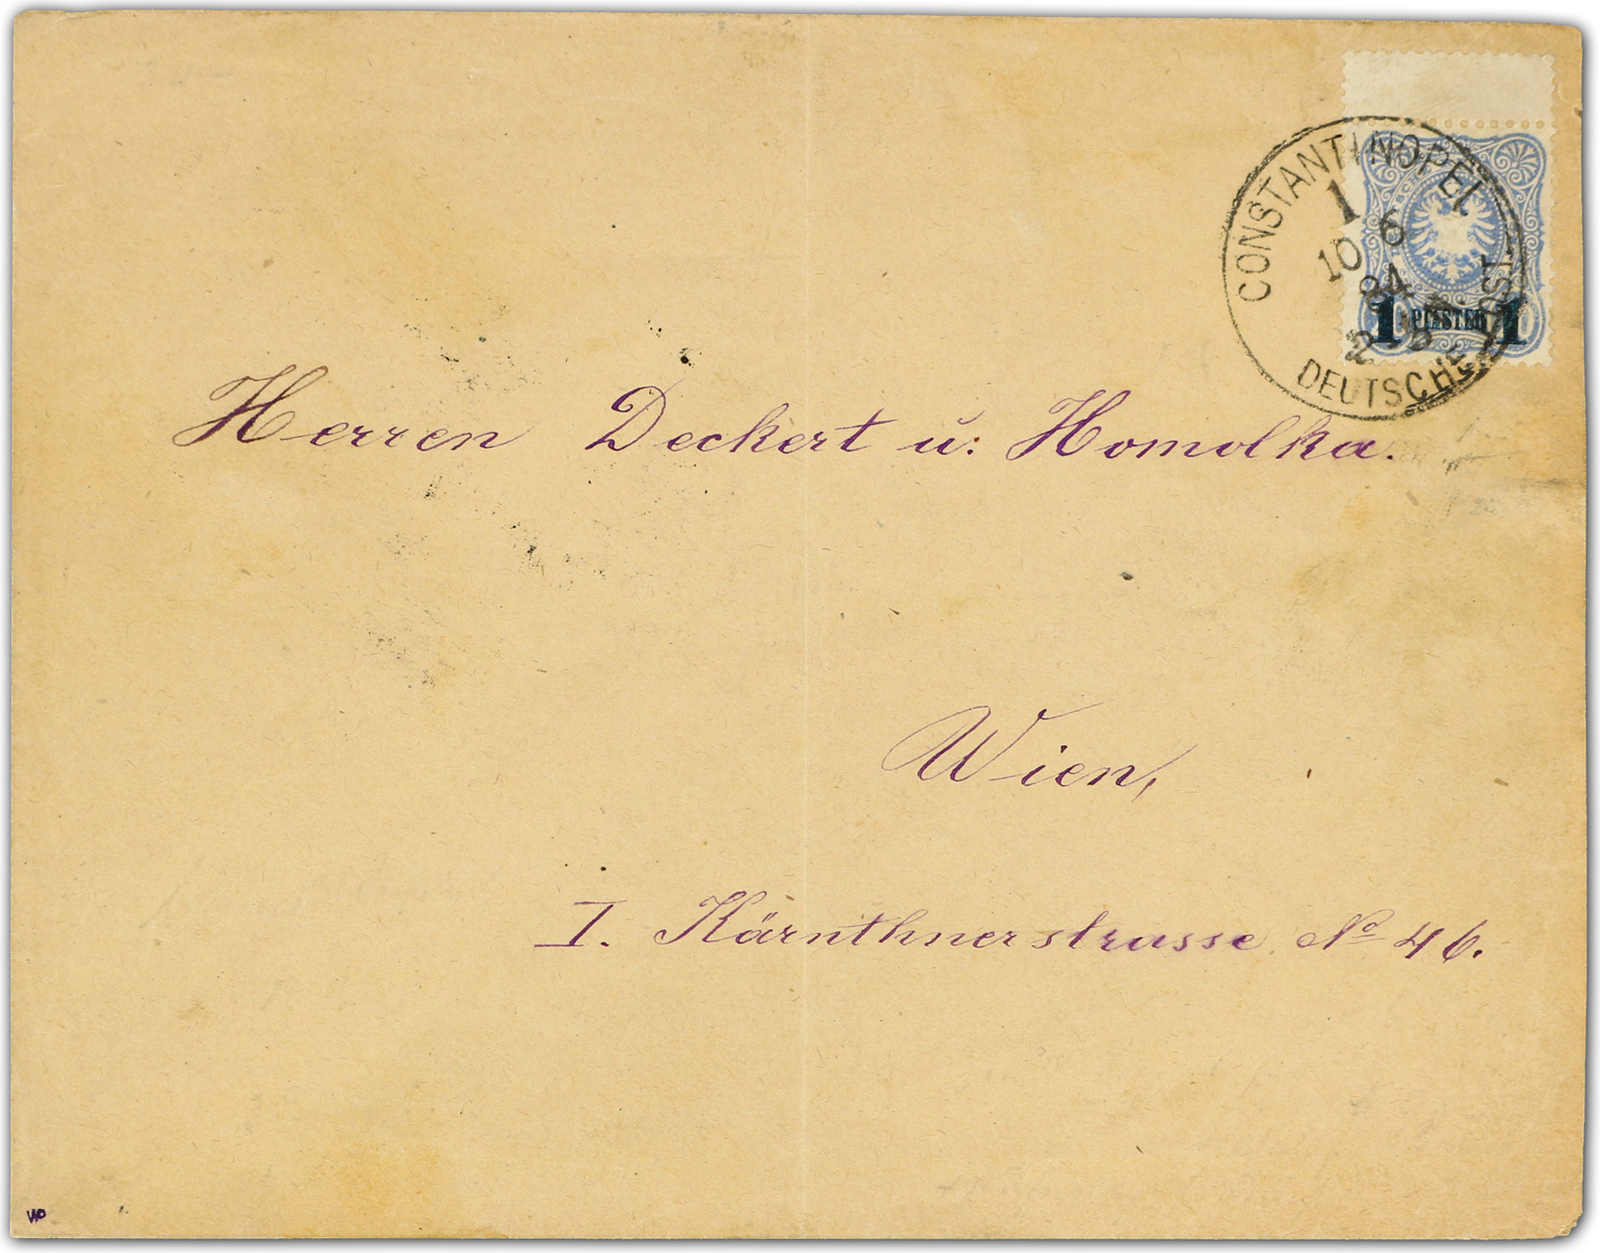 CONSTANTINOPEL
1
10 6
84
DEUTSCHE POST
1 PIASTER 1
Herren Deckert u: Homolka.
Wien,
I. Kärnthnerstrasse No 46.